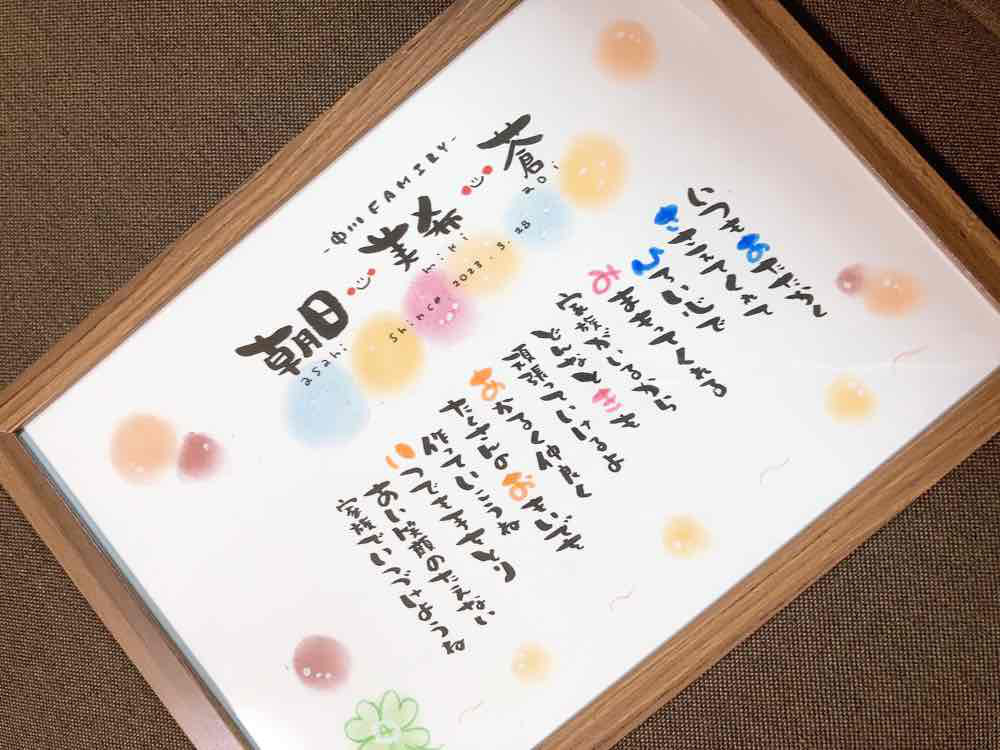 -中川FAMIRY-
朝日 美希 蒼
asahi miki aoi
since 2023.3.28
いつもあたたかく
ささえてくれて
ひろい心で
みまもってくれる
家族がいるから
どんなときも
頑張っていけるよ
あかるく仲良く
たくさんのおもいでを
作っていこうね
いつでも手をとり
あい笑顔のたえない
家族でいつづけようね